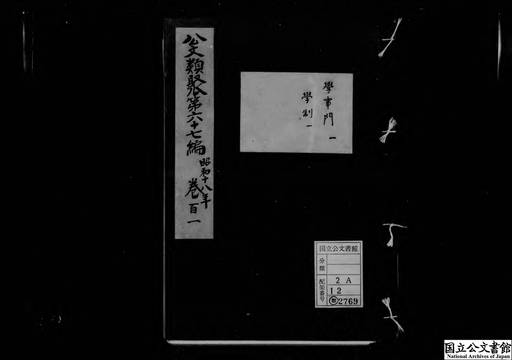 公文類聚第六十七編 昭和十八年 巻百一
學事門 一
學制 一
国立公文書館
分類
配架番号
2 A
12
類2769
国立公文書館
National Archives of Japan